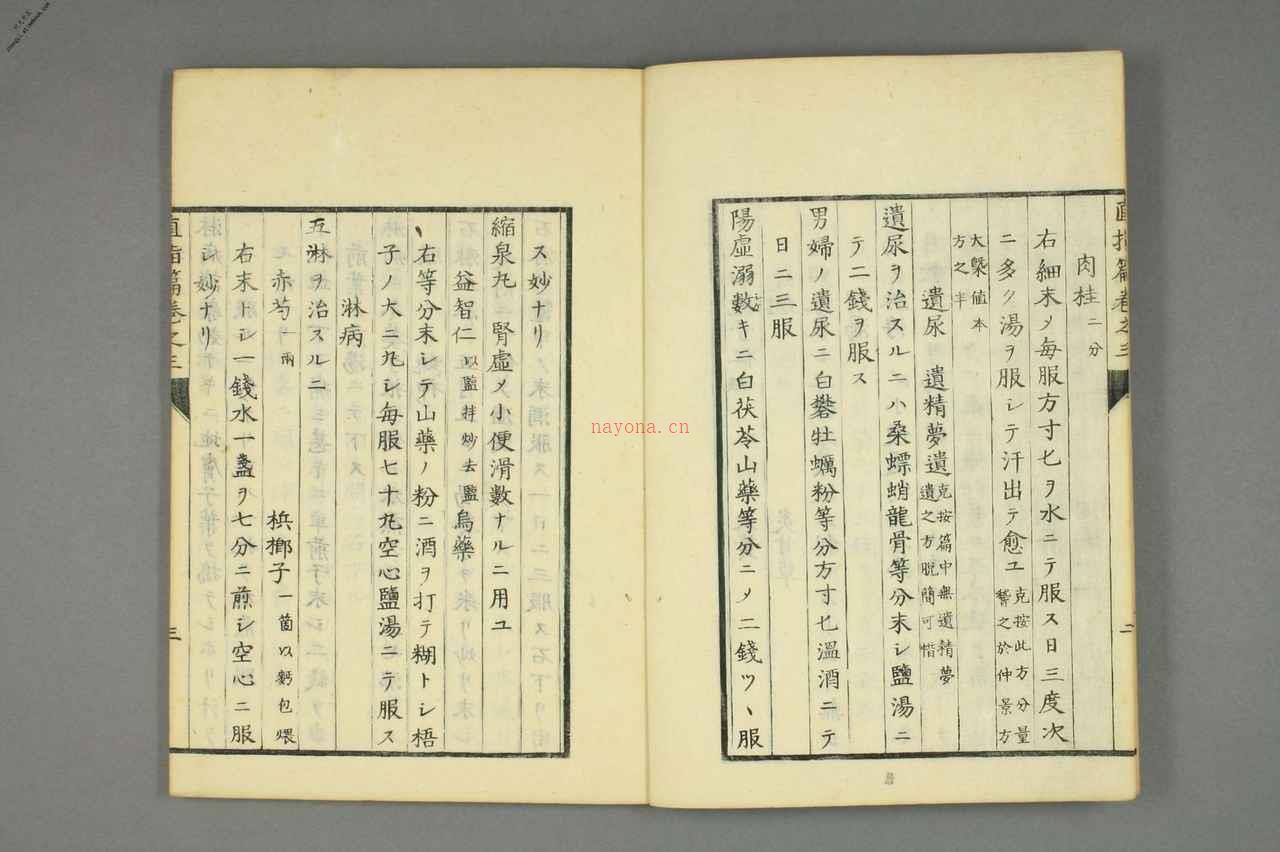 直指篇卷之三
肉桂 二分
右細末メ毎服方寸七ヲ水ニテ服ス日三度次
ニ多ク湯ヲ服シテ汗出テ愈ユ 克按此方分量
贅之於仲景方
大槩値本
方之半
遺尿 遺精夢遺 克按篇中無遺精夢
遺之方脱簡可惜
遺尿ヲ治スルニ小桑螵蛸龍骨等分末シ鹽湯ニ
テ二錢ヲ服ス
男婦ノ遺尿ニ白礬牡蠣粉等分方寸七溫酒ニテ
日ニ三服
陽虛溺數キニ白茯苓山藥等分ニメ二錢ツヽ服
二
ス妙ナリ
縮泉丸 腎虛メ小便滑數ナルニ用ユ
益智仁 以鹽持炒去鹽 烏藥
右等分末シテ山藥ノ粉ニ酒ヲ打テ糊トシ梧
子ノ大ニ丸シ毎服七十丸空心鹽湯ニテ服ス
淋病
五淋ヲ治スルニ
赤芍 兩 梹榔子 一箇以麪包煨
右末トシ一錢水一盞ヲ七分ニ煎シ空心ニ服
シ妙ナリ
直指篇卷之三
三
nayona.cn